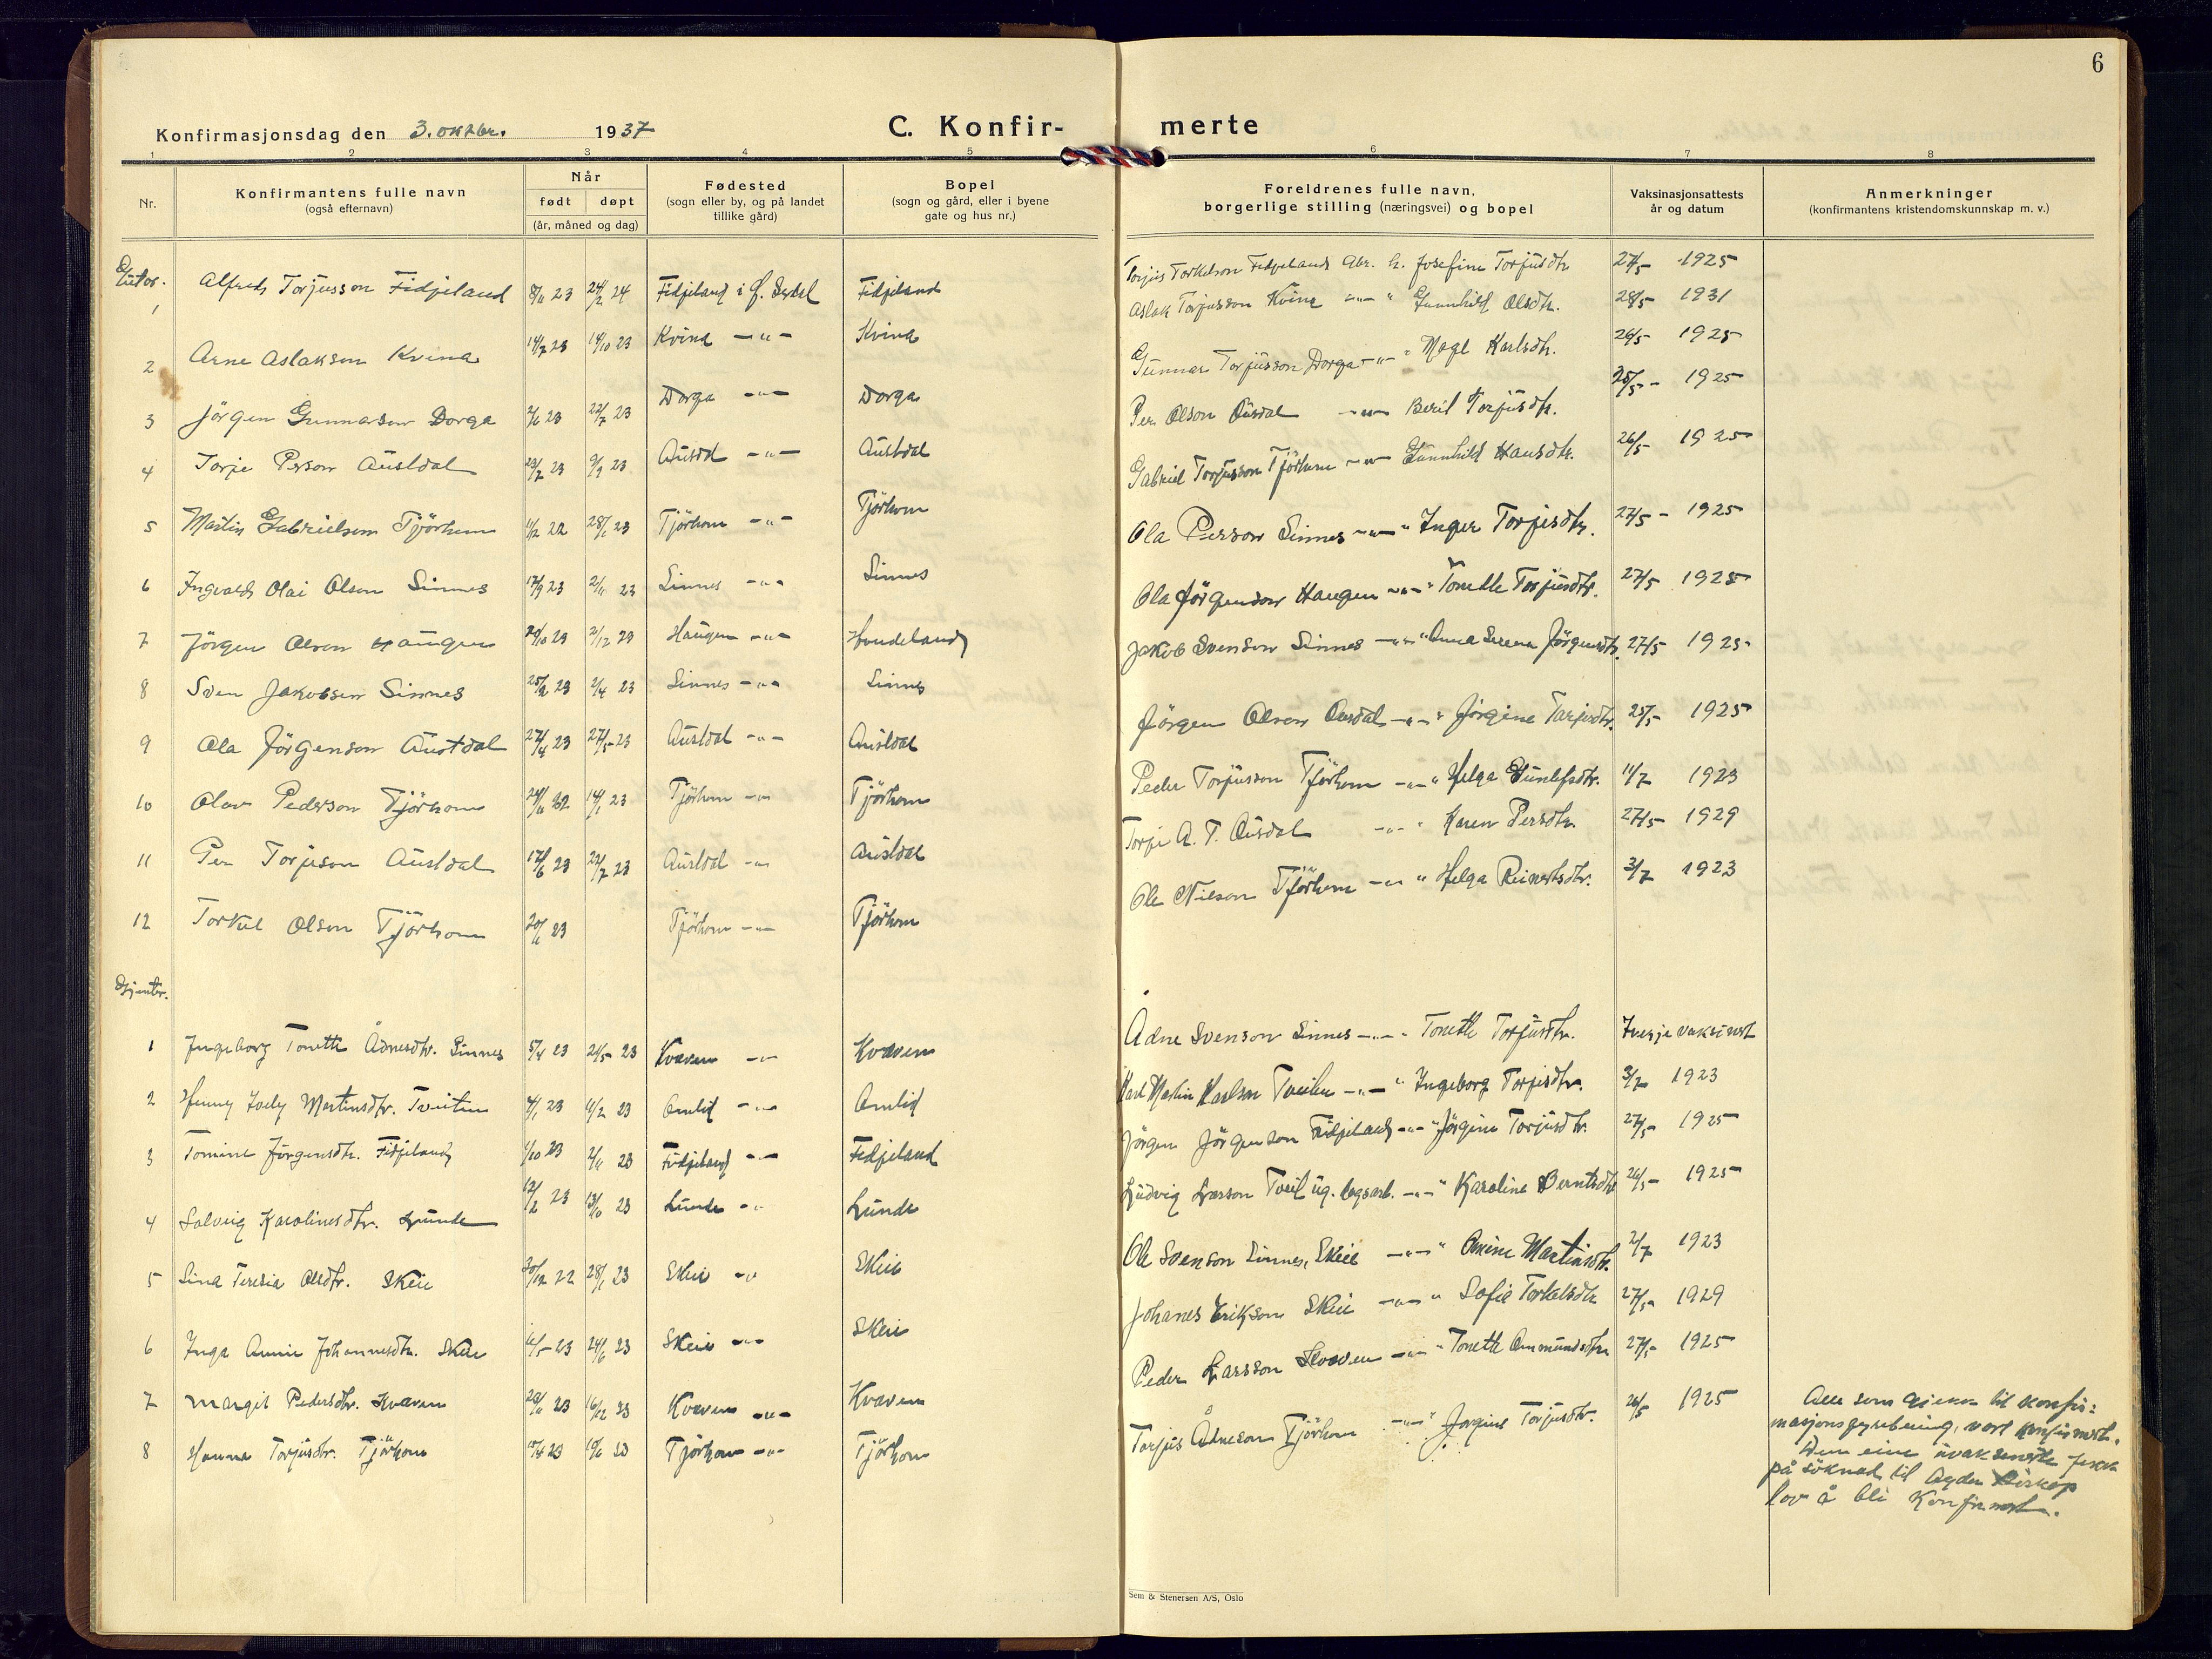 6
Konfirmasjonsdag den 3. oktbr. 1937
C. Konfir- merte
1 2 3 4 5 6 7 8
Nr.
Konfirmantens fulle navn
(også efternavn)
Når
født døpt
(år, måned og dag)
Fødested
(sogn eller by, og på landet
tillike gård)
Bopel
(sogn og gård, eller i byene
gate og hus nr.)
Foreldrenes fulle navn,
borgerlige stilling (næringsvei) og bopel
Vaksinasjonsattests
år og datum
Anmerkninger
(konfirmantens kristendomskunnskap m. v.)
Gutar.
1 Alfred Torjusson Fidjeland 8/11 23 24/2 24 Fidjeland i Ø. Sirdal Fidjeland Torjus Torkelson Fidjeland Gbr. h. Josefine Torjusdtr 27/5 1925
2 Arne Aslakson Kvina 14/7 23 14/10 23 Kvina —"— Kvina Aslak Torjusson Kvina —"— " Gunnhild Olsdtr. 28/5 1931
3 Jörgen Gunnarson Dorga 2/6 23 22/7 23 Dorga —"— Dorga Gunnar Torjusson Dorga —"— " Magl Karlsdtr. 26/5 1925
4 Torje Person Austdal 23/7 23 9/9 23 Ausdal —"— Austdal Per Olson Ausdal —"— Beril Torjusdtr. 25/5 1925
5 Martin Gabrielson Tjörhom 11/12 22 28/1 23 Tjörhom —"— Tjörhom Gabriel Torjusson Tjörhom —"— Gunnhild Hansdtr. 26/5 1925
6 Ingvald Olai Olson Sinnes 17/9 23 2/11 23 Sinnes —"— Sinnes Ola Person Sinnes —"— " Inger Torjesdtr. 27/5 1925
7 Jörgen Olson Haugen 29/10 23 2/12 23 Haugen —"— Hondeland Ola Jörgenson Haugen —"— " Tonette Torjusdtr. 27/5 1925
8 Sven Jakobsen Sinnes 25/2 23 2/4 23 Sinnes —"— Sinnes Jakob Svenson Sinnes —"— " Anna Serena Jörgensdtr. 27/5 1925
9 Ola Jörgenson Austdal 27/4 23 27/5 23 Austdal —"— Austdal Jörgen Olson Ausdal —"— " Jörgine Tarjesdtr. 25/5 1925
10 Olav Pederson Tjörhom 14/1 23 Tjörhom —"— Tjörhom Peder Torjusson Tjörhom —"— " Helga Gunlefsdtr. 11/7 1923
11 Per Torjeson Austdal 17/6 23 22/7 23 Austdal —"— Austdal Torje A. T. Ausdal —"— " Karen Persdtr. 27/5 1929
12 Torkel Olson Tjörhom 20/11 23 Tjörhom —"— Tjörhom Ole Nilson Tjörhom —"— " Helga Reinertsdtr. 3/7 1923
Gjenter.
1 Ingeborg Tonette Ådnesdtr. Sinnes 5/4 23 21/5 23 Kvæven —"— Kvæven Ådne Svenson Sinnes —"— " Tonette Torjusdtr. Ikkje vaksinert
2 Henny Joely Martinsdtr. Tveiten 4/1 23 11/2 23 Omlid —"— Omlid Karl Martin Karlson Tveiten —"— " Ingeborg Torjesdtr. 3/7 1923
3 Tomine Jörgensdtr. Fidjeland 1/10 23 2/11 23 Fidjeland —"— Fidjeland Jörgen Jörgenson Fidjeland —"— " Jörgine Torjusdtr. 27/5 1925
4 Solveig Karolinesdtr. Lunde 12/2 23 13/10 23 Lunde —"— Lunde Ludvig Larsson Tveit ug. dagsarb. —"— " Karoline Berntsdtr 26/5 1925
5 Lina Teresia Olsdtr. Skeie 30/12 22 28/1 23 Skeie —"— Skeie Ole Svenson Sinnes, Skeie —"— " Omine Martinsdtr. 2/7 1923
6 Inga Annie Johannesdtr. Skeie 6/5 23 24/6 23 Skeie —"— Skeie Johanes Erikson Skeie —"— " Sofie Torkelsdtr 27/5 1929
7 Margit Pedersdtr. Kvæven 20/11 23 16/12 23 Kvæven —"— Kvæven Peder Larsson Kvæven —"— " Tonette Ommundsdtr 27/5 1925
8 Hanna Torjusdtr. Tjörhom 15/4 23 10/6 23 Tjörhom —"— Tjörhom Torjus Ådneson Tjörhom —"— " Jorgine Torjusdtr. 26/5 1925
Alle som gjekk til konfir=
masjonsfyrebuing, vart konfirmert.
Den eine uvaksinerte fekk
på söknad til Agder Biskop
lov å bli Konfirmert.
Sem & Stenersen A/S, Oslo